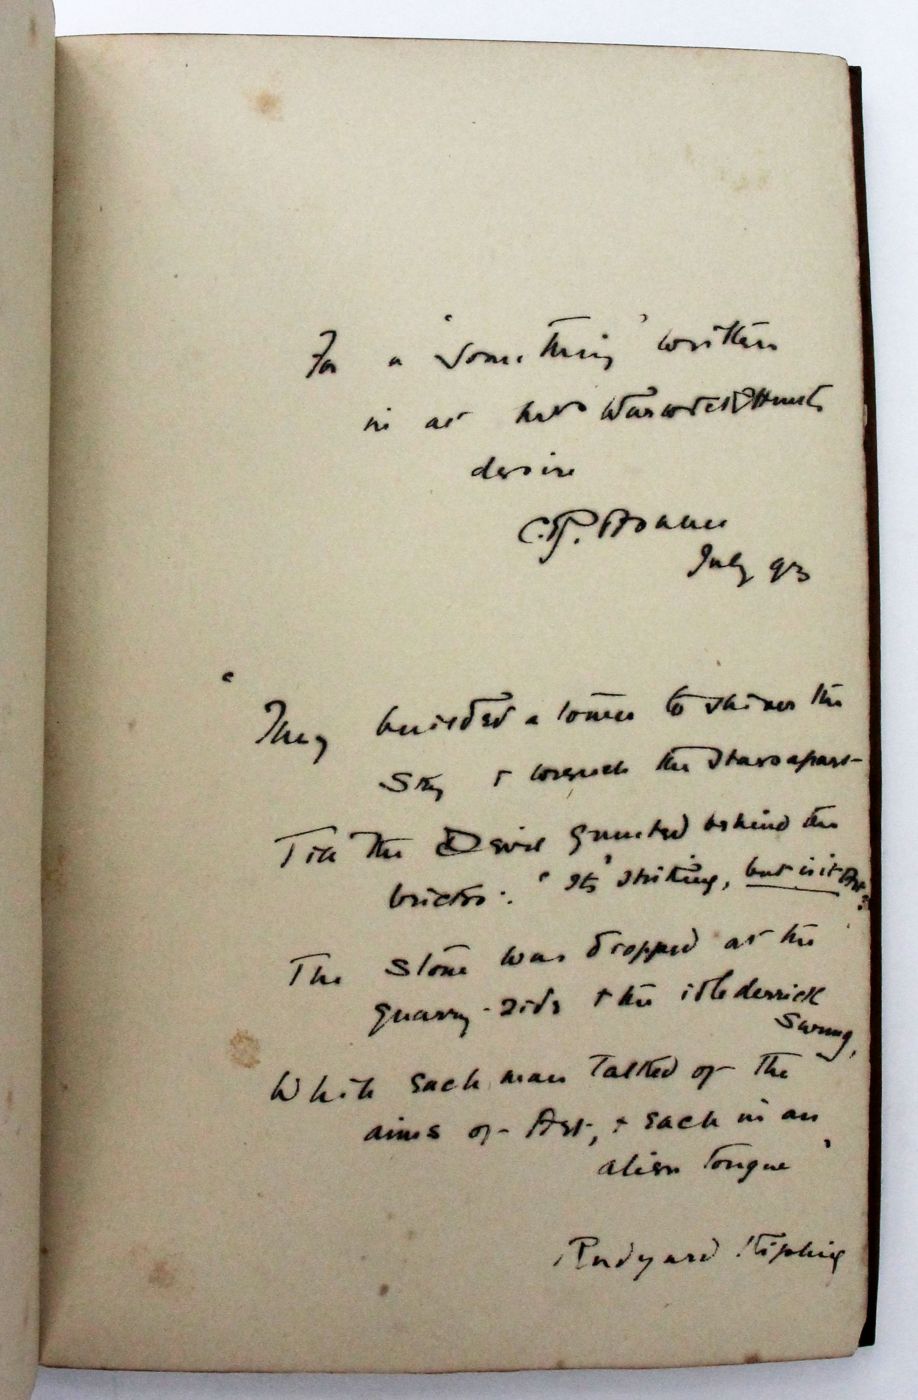 For a 'Something' written
in at
desire
July 93
"They builded a tower to shiver the
Sky & wrench the stars apart –
Till the Devil grunted behind the
bricks: "It's striking, but is it Art?
The stone was dropped at the
quarry-side & the idle derrick
swung,
While each man talked of the
aims of – Art, & each in an
alien tongue"
Rudyard Kipling